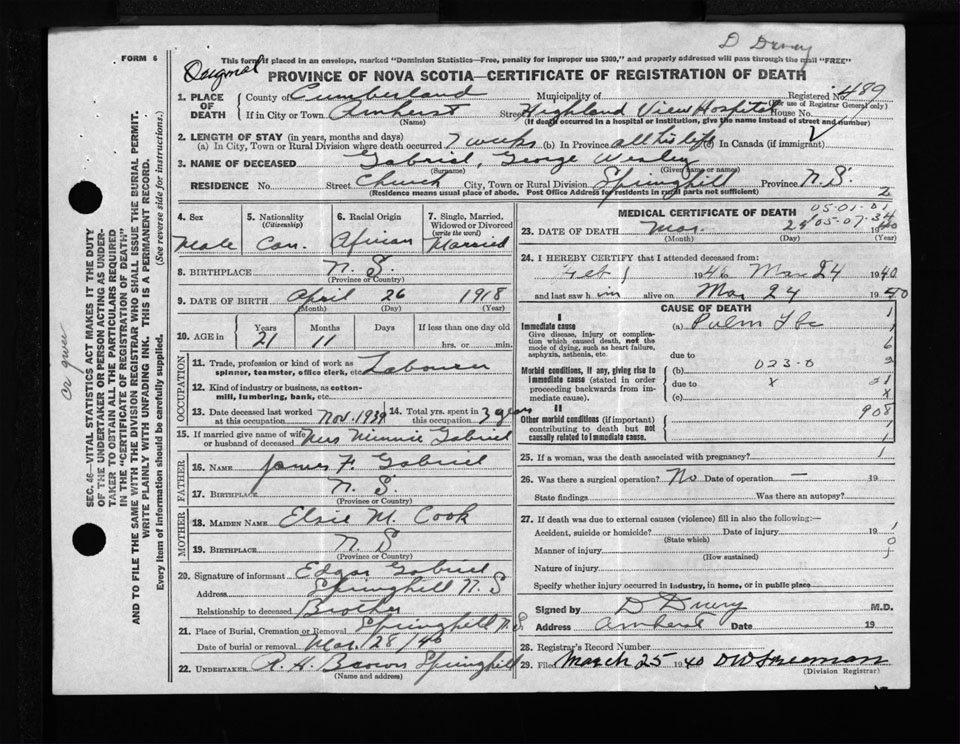 D Drury
FORM 6
This form if placed in an envelope, marked "Dominion Statistics—Free, penalty for improper use $300," and properly addressed will pass through the mail "FREE"
Original
PROVINCE OF NOVA SCOTIA—CERTIFICATE OF REGISTRATION OF DEATH
1. PLACE OF DEATH
County of Cumberland Municipality of Registered No. 489
(For use of Registrar General only)
If in City or Town Amherst Street Highland View Hospital House No.
(Name) (If death occurred in a hospital or institution, give the name instead of street and number)
2. LENGTH OF STAY (in years, months and days)
(a) In City, Town or Rural Division where death occurred 7 weeks (b) In Province all his life (c) In Canada (if immigrant)
3. NAME OF DECEASED Gabriel, George Wesley
(Surname) (Given name or names)
RESIDENCE No. Street Church City, Town or Rural Division Springhill Province N.S.
(Residence means usual place of abode. Post Office Address for residents in rural parts not sufficient)
4. Sex
Male
5. Nationality (Citizenship)
Can.
6. Racial Origin
African
7. Single, Married, Widowed or Divorced (write the word)
Married
8. BIRTHPLACE N.S.
(Province or Country)
9. DATE OF BIRTH April 26 1918
(Month) (Day) (Year)
10. AGE in Years Months Days If less than one day old
21 11 hrs. or min.
OCCUPATION
11. Trade, profession or kind of work as spinner, teamster, office clerk, etc. Labourer
12. Kind of industry or business, as cotton-mill, lumbering, bank, etc.
13. Date deceased last worked at this occupation Nov. 1939
14. Total yrs. spent in this occupation 3 years
15. If married give name of wife or husband of deceased Mrs Minnie Gabriel
FATHER
16. NAME James F. Gabriel
17. BIRTHPLACE N.S.
(Province or Country)
MOTHER
18. MAIDEN NAME Elsie M. Cook
19. BIRTHPLACE N.S
(Province or Country)
20. Signature of informant Edgar Gabriel
Address Springhill N.S
Relationship to deceased Brother
21. Place of Burial, Cremation or Removal Springhill N.S.
Date of burial or removal Mar. 28/40
22. UNDERTAKER A. H. Brown Springhill
(Name and address)
MEDICAL CERTIFICATE OF DEATH
05-01-01
05-07-34
23. DATE OF DEATH Mar. 25 1940
(Month) (Day) (Year)
24. I HEREBY CERTIFY that I attended deceased from:
Feb 1 1940 Mar 24 1940
and last saw him alive on Mar 24 1940
CAUSE OF DEATH
I
Immediate cause
Give disease, injury or complication which caused death, not the mode of dying, such as heart failure, asphyxia, asthenia, etc.
(a) Pulm Tbc
due to
Morbid conditions, if any, giving rise to immediate cause (stated in order proceeding backwards from immediate cause).
(b) 023-0
due to x
(c)
II
Other morbid conditions (if important) contributing to death but not causally related to immediate cause.
908
25. If a woman, was the death associated with pregnancy?
26. Was there a surgical operation? No Date of operation — 19
State findings Was there an autopsy?
27. If death was due to external causes (violence) fill in also the following:—
Accident, suicide or homicide? Date of injury 19
(State which)
Manner of injury
(How sustained)
Nature of injury
Specify whether injury occurred in industry, in home, or in public place
Signed by D Drury M.D.
Address Amherst Date 19
28. Registrar's Record Number
29. Filed March 25 1940 DW Freeman
(Division Registrar)
SEC. 46—VITAL STATISTICS ACT MAKES IT THE DUTY
OF THE UNDERTAKER OR PERSON ACTING AS UNDER-
TAKER TO OBTAIN ALL THE PARTICULARS REQUIRED
IN THE "CERTIFICATE OF REGISTRATION OF DEATH"
AND TO FILE THE SAME WITH THE DIVISION REGISTRAR WHO SHALL ISSUE THE BURIAL PERMIT.
WRITE PLAINLY WITH UNFADING INK. THIS IS A PERMANENT RECORD.
Every item of information should be carefully supplied. (See reverse side for instructions.)